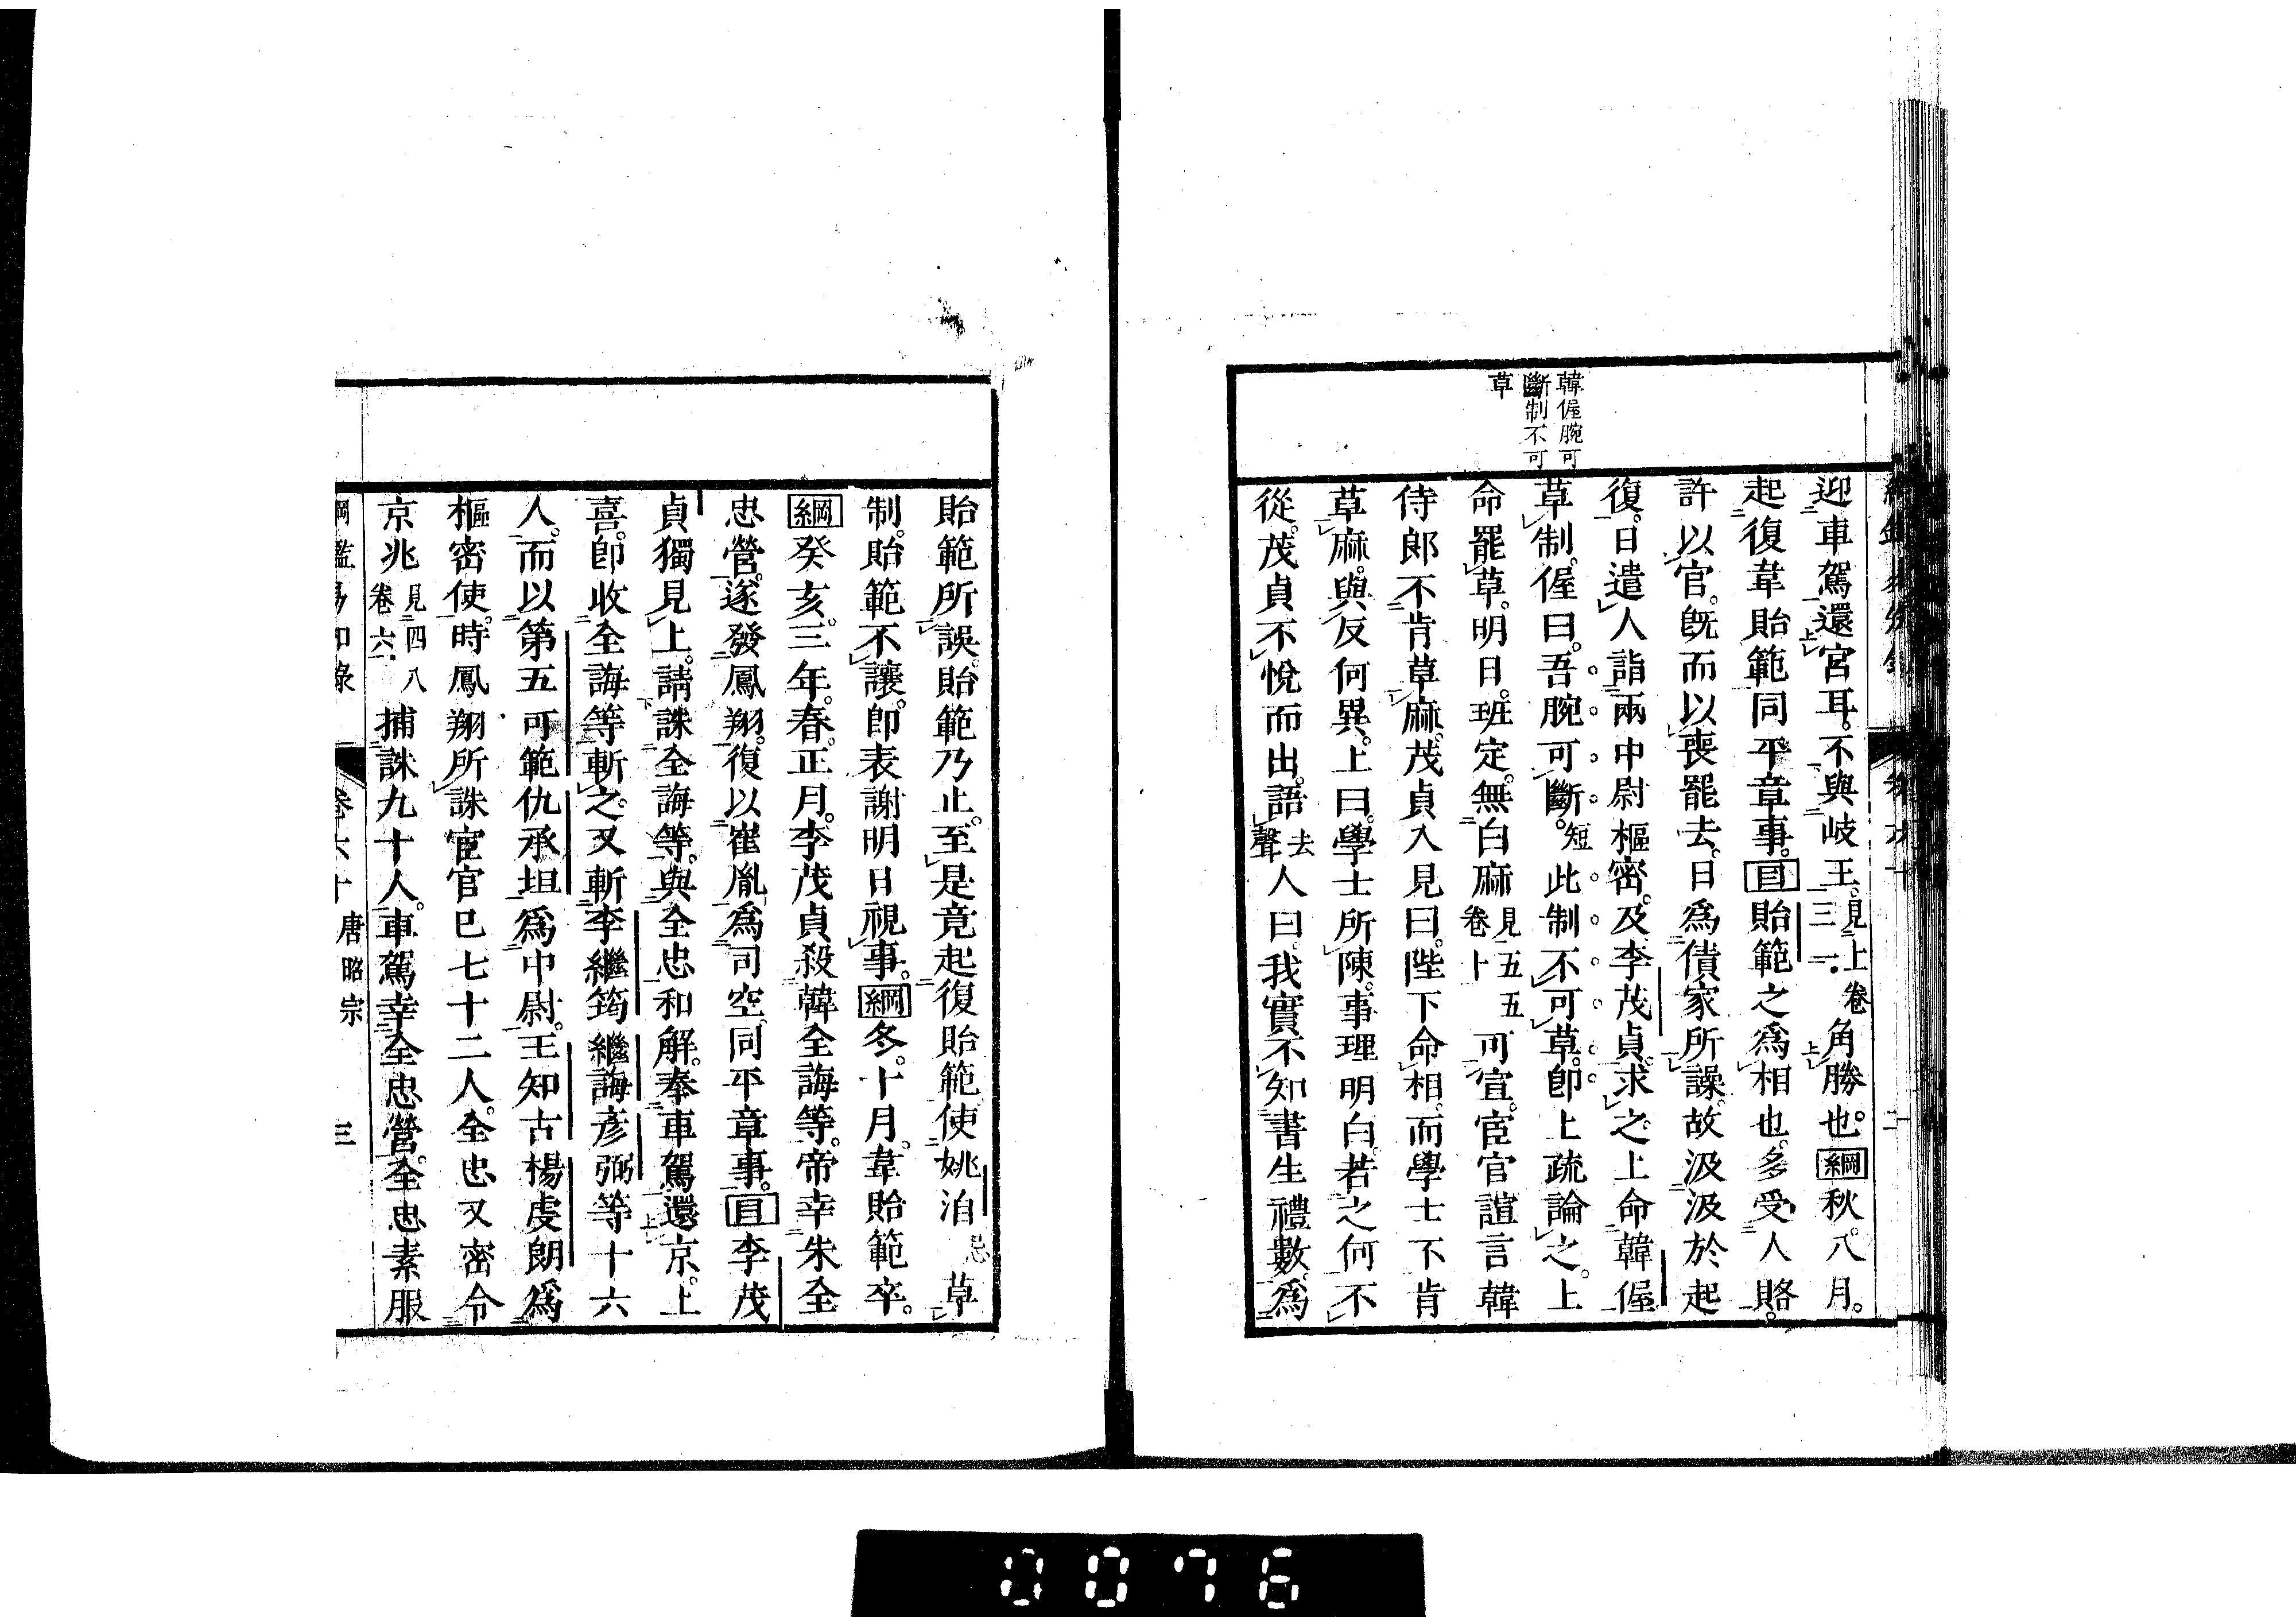 韓偓腕可
斷制不可
草
迎車駕還宮耳。不與岐王。見上卷三一。角勝也。綱秋。八月。
起復韋貽範同平章事。目貽範之爲相也。多受人賂。
許以官。旣而以喪罷去。日爲債家所譟。故汲汲於起
復。日遣人詣兩中尉樞密。及李茂貞。求之。上命韓偓
草制。偓曰。吾腕可斷。短此制不可草。卽上疏論之。上
命罷草。明日。班定。無白麻見五五卷卜可宣。宦官諠言韓
侍郎不肯草麻。茂貞入見曰。陛下命相。而學士不肯
草麻。與反何異。上曰。學士所陳。事理明白。若之何不
從。茂貞不悅而出。語去聲人曰。我實不知書生禮數。爲
貽範所誤。貽範乃止。至是竟起復貽範。使姚洎忌草
制。貽範不讓。卽表謝明日視事。綱冬。十月。韋貽範卒。
綱癸亥。三年。春。正月。李茂貞殺韓全誨等。帝幸朱全
忠營。遂發鳳翔。復以崔胤爲司空。同平章事。目李茂
貞獨見上。請誅全誨等。與全忠和解。奉車駕還京。上
喜。卽收全誨等斬之。又斬李繼筠繼誨彥弼等十六
人。而以第五可範仇承坦爲中尉。王知古楊虔朗爲
樞密使。時鳳翔所誅宦官已七十二人。全忠又密令
京兆見四八卷六捕誅九十人。車駕幸全忠營。全忠素服
綱鑑易知錄 卷六十 唐昭宗 三
0076